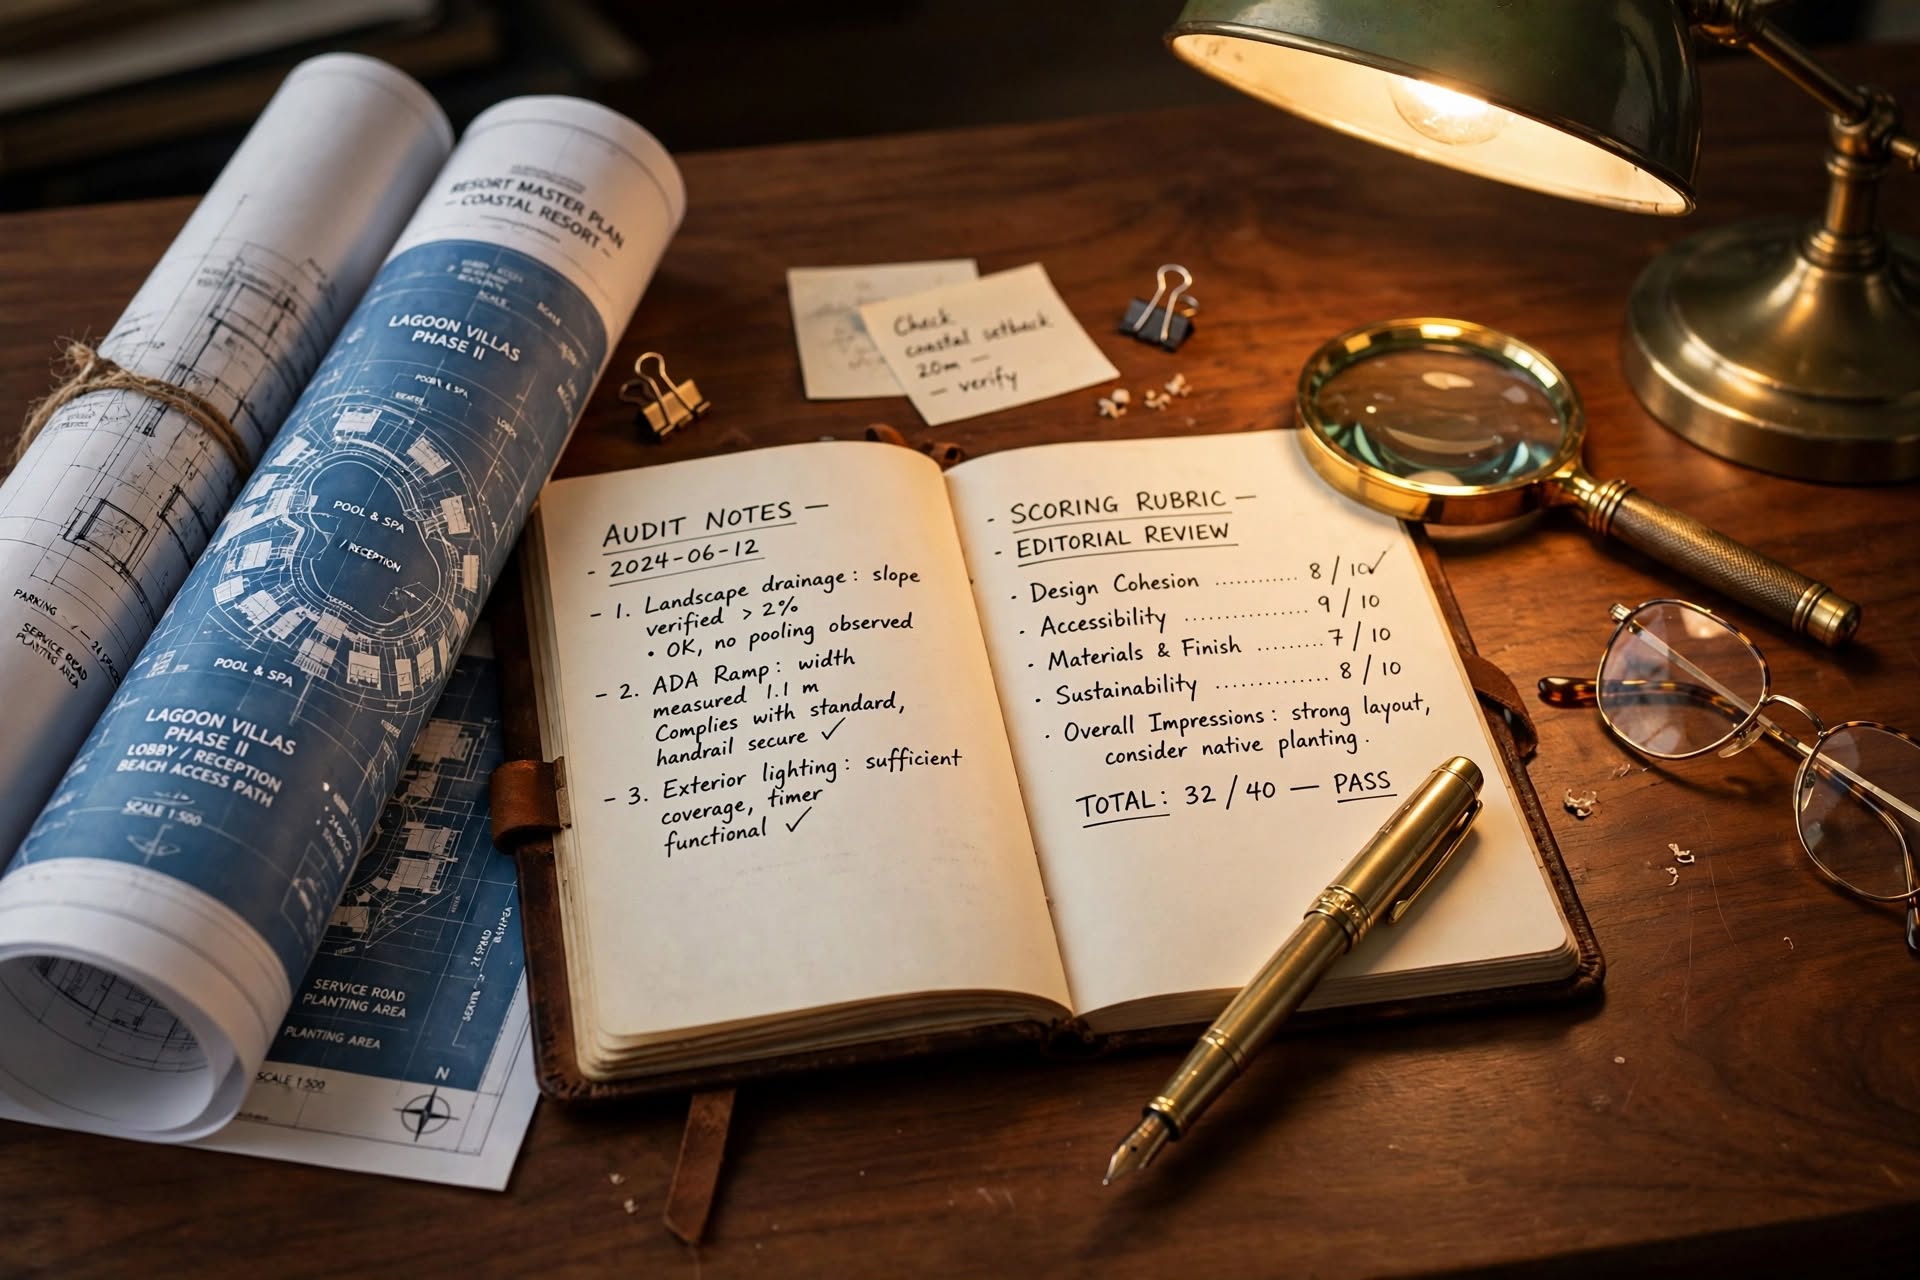 RESORT MASTER PLAN
— COASTAL RESORT —
SCALE
LAGOON VILLAS
PHASE II
POOL & SPA
/ RECEPTION
POOL & SPA
LAGOON VILLAS
PHASE II
LOBBY / RECEPTION
BEACH ACCESS PATH
SCALE 1:500
PARKING
SERVICE ROAD
PLANTING AREA
SERVICE ROAD
PLANTING AREA
PLANTING AREA
SCALE 1:500
N
Check
coastal setback
20m —
— verify
AUDIT NOTES —
- 2024-06-12
- 1. Landscape drainage: slope
verified > 2%
• OK, no pooling observed
- 2. ADA Ramp: width
measured 1.1 m
Complies with standard,
handrail secure ✓
- 3. Exterior lighting: sufficient
coverage, timer
functional ✓
- SCORING RUBRIC —
- EDITORIAL REVIEW
· Design Cohesion ............ 8 / 10 ✓
· Accessibility ............... 9 / 10
· Materials & Finish ......... 7 / 10
· Sustainability .............. 8 / 10
· Overall Impressions: strong layout,
consider native planting.
TOTAL: 32 / 40 — PASS